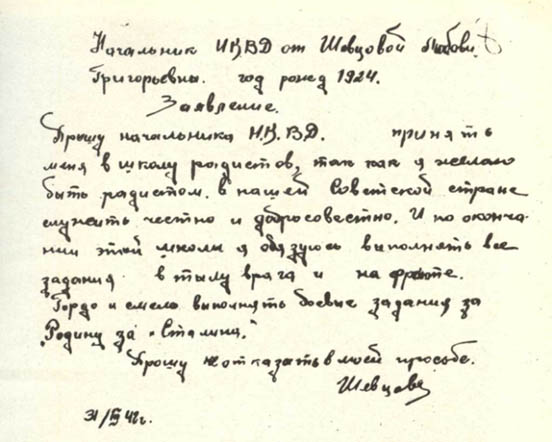 Начальник Н.К.ВД от Шевцовой Любови
Григорьевны. год рожед 1924.
Заявление.
Прошу начальника Н.К.ВД. принять
меня в школу радистов, так как я желаю
быть радистом. в нашей Советской стране
служить честно и добросовестно. И по оконча-
нии этой школы я обязуюсь выполнять все
задания в тылу врага и на фронте.
Гордо и смело выполнять боевые задания за
"Родину за "Сталина."
Прошу не отказать в моей просьбе.
Шевцова
42г.